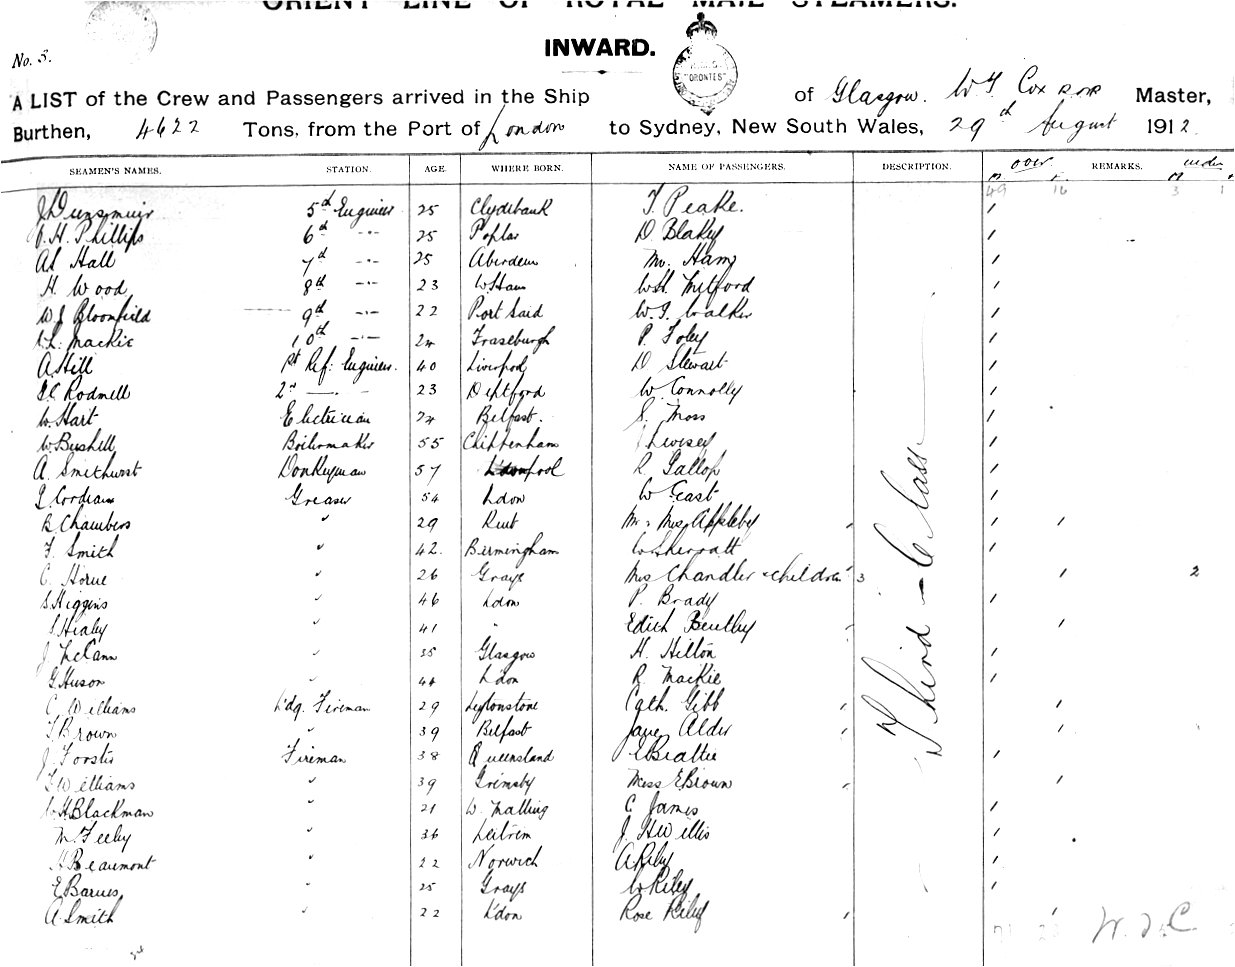 ORIENT LINE OF ROYAL MAIL STEAMERS.
No. 3.
INWARD.
"ORONTES"
A LIST of the Crew and Passengers arrived in the Ship of Glasgow. Cox Master,
Burthen, 4622 Tons, from the Port of London to Sydney, New South Wales, 29th August 1912
over under
SEAMEN'S NAMES. STATION. AGE. WHERE BORN. NAME OF PASSENGERS. DESCRIPTION. REMARKS.
49 16 3 1
J Dunsmuir 5th Engineer 25 Clydebank T. Peake. 1
H. Phillips 6th -"- 25 Poplar D. Blakey 1
Al Hall 7th -"- 25 Aberdeen Mr. Ham 1
H Wood 8th -"- 23 W. Ham WH. Milford 1
WJ Bloomfield 9th -"- 22 Port Said W. G. Walker 1
Mackie 10th -"- 24 Fraseburgh P. Foley 1
A Hill 1st Ref: Engineer. 40 Liverpool D Stewart 1
Rodmell 2nd 23 Deptford W. Connolly 1
W Hart Electrician 24 Belfast. S. Moss 1
W Bushell Boilermaker 55 Chippenham J Livesey 1
A. Smithurst Donkeyman 57 L'pool R. Gallop 1
J Cordean Greaser 54 Ldon W East 1
R Chambers " 29 Kent Mr & Mrs Appleby 1 1
F. Smith " 42. Birmingham W Sherratt 1
C. Horne " 26 Grays Mrs Chandler & children 3 1 2
S. Higgins " 46 Ldon P. Brady 1
S. Healy " 41 " Edith Bentley 1
J McCann " 35 Glasgow H. Hilton 1
G Huson " 44 L'don R. Mackie 1
C Williams L'dg. Fireman 29 Leytonstone Cath. Gibb 1
T. Brown " 39 Belfast Jane Alder 1
J. Forster Fireman 38 Queensland E Beattie 1
F Williams " 39 Grimsby Miss E Brown 1
W H Blackman " 21 W. Malling C. James 1
M. Feeley " 36 Leitrim J. H Willis 1
H Beaumont " 22 Norwich A Riley 1
E Barnes " 25 Grays W Riley 1
A. Smith " 22 L'don Rose Riley 1
Third Class
71